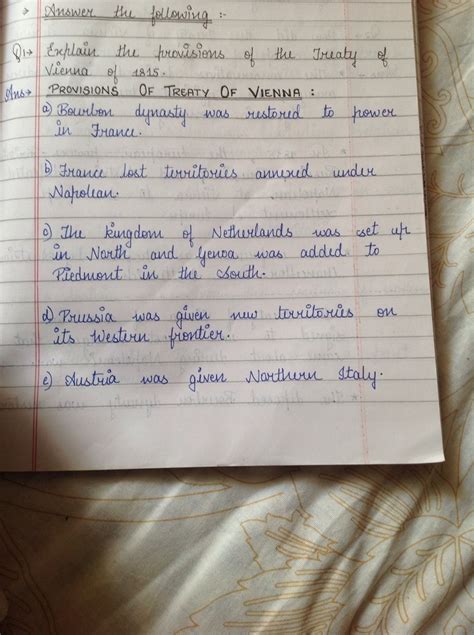 > Answer the following :-
Q1→ Explain the provisions of the Treaty of
Vienna of 1815.
Ans→ PROVISIONS OF TREATY OF VIENNA :
a) Bourbon dynasty was restored to power
in France.
b) France lost territories annexed under
Napolean.
c) The kingdom of Netherlands was set up
in North and Genoa was added to
Piedmont in the South.
d) Prussia was given new territories on
its Western frontier.
e) Austria was given Northern Italy.